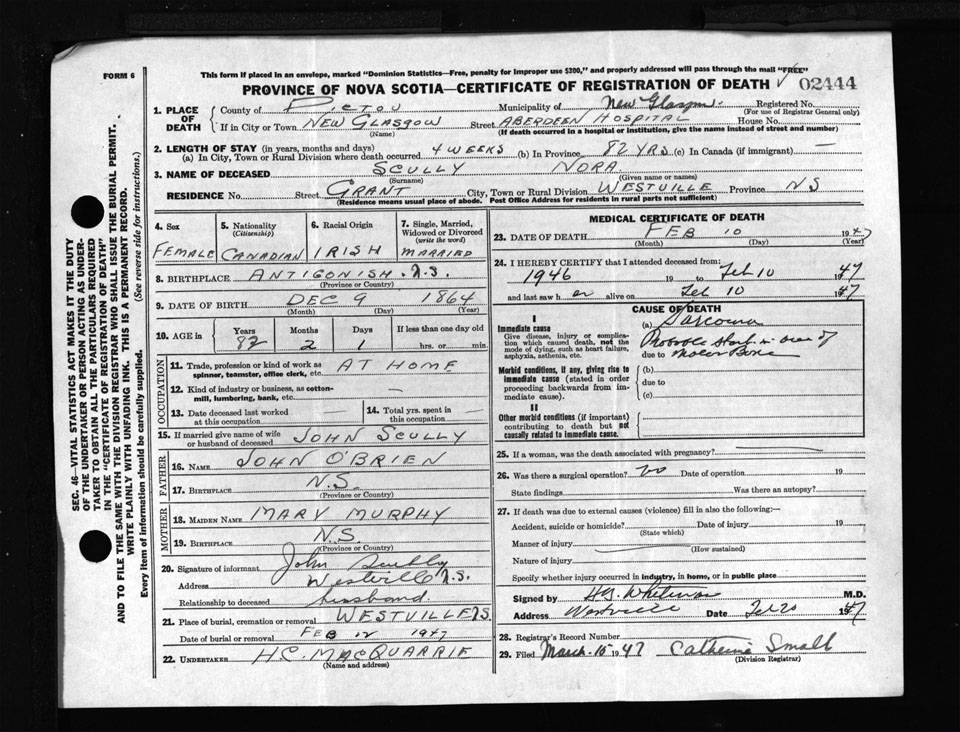 FORM 6
This form if placed in an envelope, marked "Dominion Statistics—Free, penalty for improper use $300," and properly addressed will pass through the mail "FREE"
PROVINCE OF NOVA SCOTIA—CERTIFICATE OF REGISTRATION OF DEATH ✓ 02444
1. PLACE OF DEATH
County of Pictou Municipality of New Glasgow Registered No.
(For use of Registrar General only)
If in City or Town NEW GLASGOW Street ABERDEEN HOSPITAL House No.
(Name) (If death occurred in a hospital or institution, give the name instead of street and number)
2. LENGTH OF STAY (in years, months and days)
(a) In City, Town or Rural Division where death occurred 4 WEEKS (b) In Province 82 YRS (c) In Canada (if immigrant) —
3. NAME OF DECEASED SCULLY NORA
(Surname) (Given name or names)
RESIDENCE No. Street GRANT City, Town or Rural Division WESTVILLE Province NS
(Residence means usual place of abode. Post Office Address for residents in rural parts not sufficient)
4. Sex
FEMALE
5. Nationality
(Citizenship)
CANADIAN
6. Racial Origin
IRISH
7. Single, Married, Widowed or Divorced
(write the word)
MARRIED
8. BIRTHPLACE ANTIGONISH N.S.
(Province or Country)
9. DATE OF BIRTH DEC 9 1864
(Month) (Day) (Year)
10. AGE in Years Months Days If less than one day old
82 2 1 hrs. or min.
OCCUPATION
11. Trade, profession or kind of work as spinner, teamster, office clerk, etc. AT HOME
12. Kind of industry or business, as cotton-mill, lumbering, bank, etc. —
13. Date deceased last worked at this occupation —
14. Total yrs. spent in this occupation —
15. If married give name of wife or husband of deceased JOHN SCULLY
FATHER
16. NAME JOHN O'BRIEN
17. BIRTHPLACE N.S.
(Province or Country)
MOTHER
18. MAIDEN NAME MARY MURPHY
19. BIRTHPLACE N.S.
(Province or Country)
20. Signature of informant John Scully
Address Westville N.S.
Relationship to deceased husband
21. Place of burial, cremation or removal WESTVILLE N.S.
Date of burial or removal FEB 12 1947
22. UNDERTAKER H.C. MACQUARRIE
(Name and address)
MEDICAL CERTIFICATE OF DEATH
23. DATE OF DEATH FEB 10 1947
(Month) (Day) (Year)
24. I HEREBY CERTIFY that I attended deceased from:
1946 19 to Feb 10 1947
and last saw her alive on Feb 10 1947
CAUSE OF DEATH
I
Immediate cause
Give disease, injury or complication which caused death, not the mode of dying, such as heart failure, asphyxia, asthenia, etc.
(a) Sarcoma
Probable start in area of
due to Molar Bone
Morbid conditions, if any, giving rise to immediate cause (stated in order proceeding backwards from immediate cause).
(b)
due to
(c)
II
Other morbid conditions (if important) contributing to death but not causally related to immediate cause.
25. If a woman, was the death associated with pregnancy?
26. Was there a surgical operation? no Date of operation 19
State findings Was there an autopsy?
27. If death was due to external causes (violence) fill in also the following:—
Accident, suicide or homicide? Date of injury 19
(State which)
Manner of injury
(How sustained)
Nature of injury
Specify whether injury occurred in industry, in home, or in public place
Signed by Whitman M.D.
Address Westville Date Feb 20 1947
28. Registrar's Record Number
29. Filed March 15 1947 Catherine Small
(Division Registrar)
SEC. 46—VITAL STATISTICS ACT MAKES IT THE DUTY
OF THE UNDERTAKER OR PERSON ACTING AS UNDER-
TAKER TO OBTAIN ALL THE PARTICULARS REQUIRED
IN THE "CERTIFICATE OF REGISTRATION OF DEATH"
AND TO FILE THE SAME WITH THE DIVISION REGISTRAR WHO SHALL ISSUE THE BURIAL PERMIT.
WRITE PLAINLY WITH UNFADING INK. THIS IS A PERMANENT RECORD.
Every item of information should be carefully supplied. (See reverse side for instructions.)